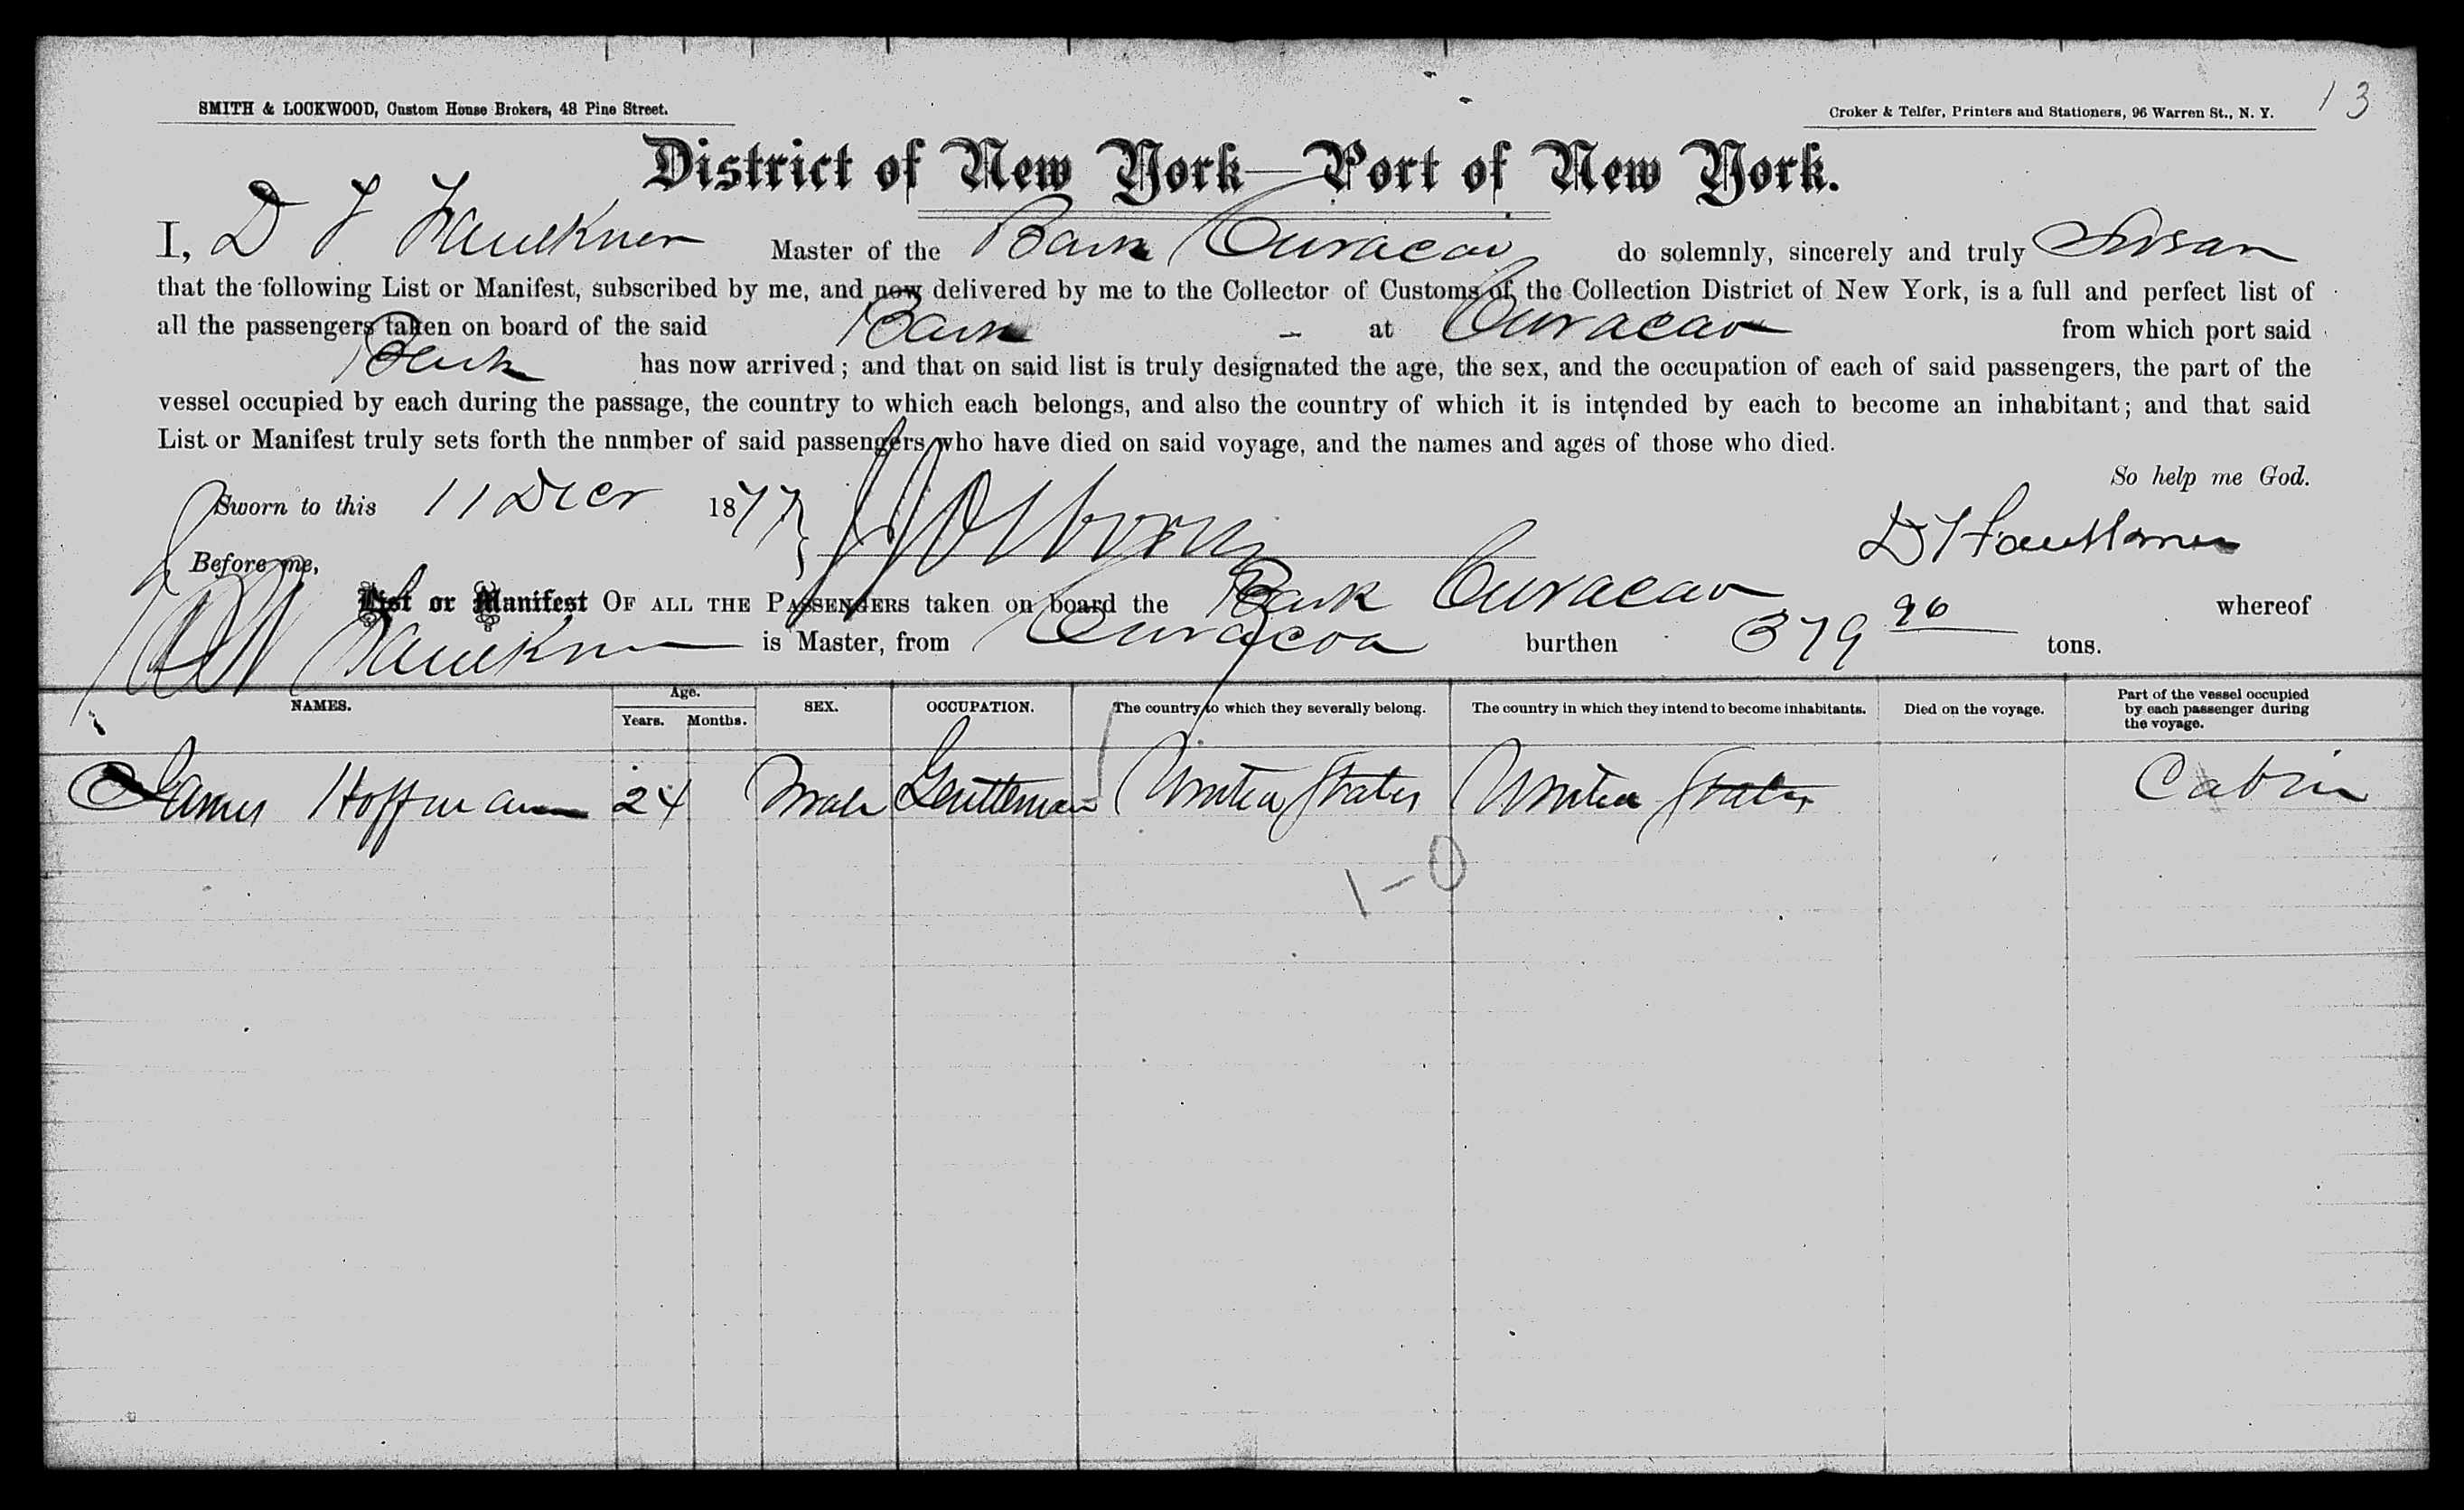 SMITH & LOCKWOOD, Custom House Brokers, 48 Pine Street.
Croker & Telfer, Printers and Stationers, 96 Warren St., N. Y.
13
District of New York—Port of New York.
I, D F Faulkner Master of the Bark Curacao do solemnly, sincerely and truly Swear
that the following List or Manifest, subscribed by me, and now delivered by me to the Collector of Customs of the Collection District of New York, is a full and perfect list of
all the passengers taken on board of the said Bark - at Curacao from which port said
Bark has now arrived; and that on said list is truly designated the age, the sex, and the occupation of each of said passengers, the part of the
vessel occupied by each during the passage, the country to which each belongs, and also the country of which it is intended by each to become an inhabitant; and that said
List or Manifest truly sets forth the nnmber of said passengers who have died on said voyage, and the names and ages of those who died.
So help me God.
Sworn to this 11 Decr 1877
D F Faulkner
Before me,
List or Manifest OF ALL THE PASSENGERS taken on board the Bark Curacao whereof
Faulkner is Master, from Curacoa burthen 379 96 tons.
NAMES. Age. Years. Months. SEX. OCCUPATION. The country to which they severally belong. The country in which they intend to become inhabitants. Died on the voyage. Part of the vessel occupied by each passenger during the voyage.
James Hoffman 24 Male Gentleman United States United States Cabin
1-0